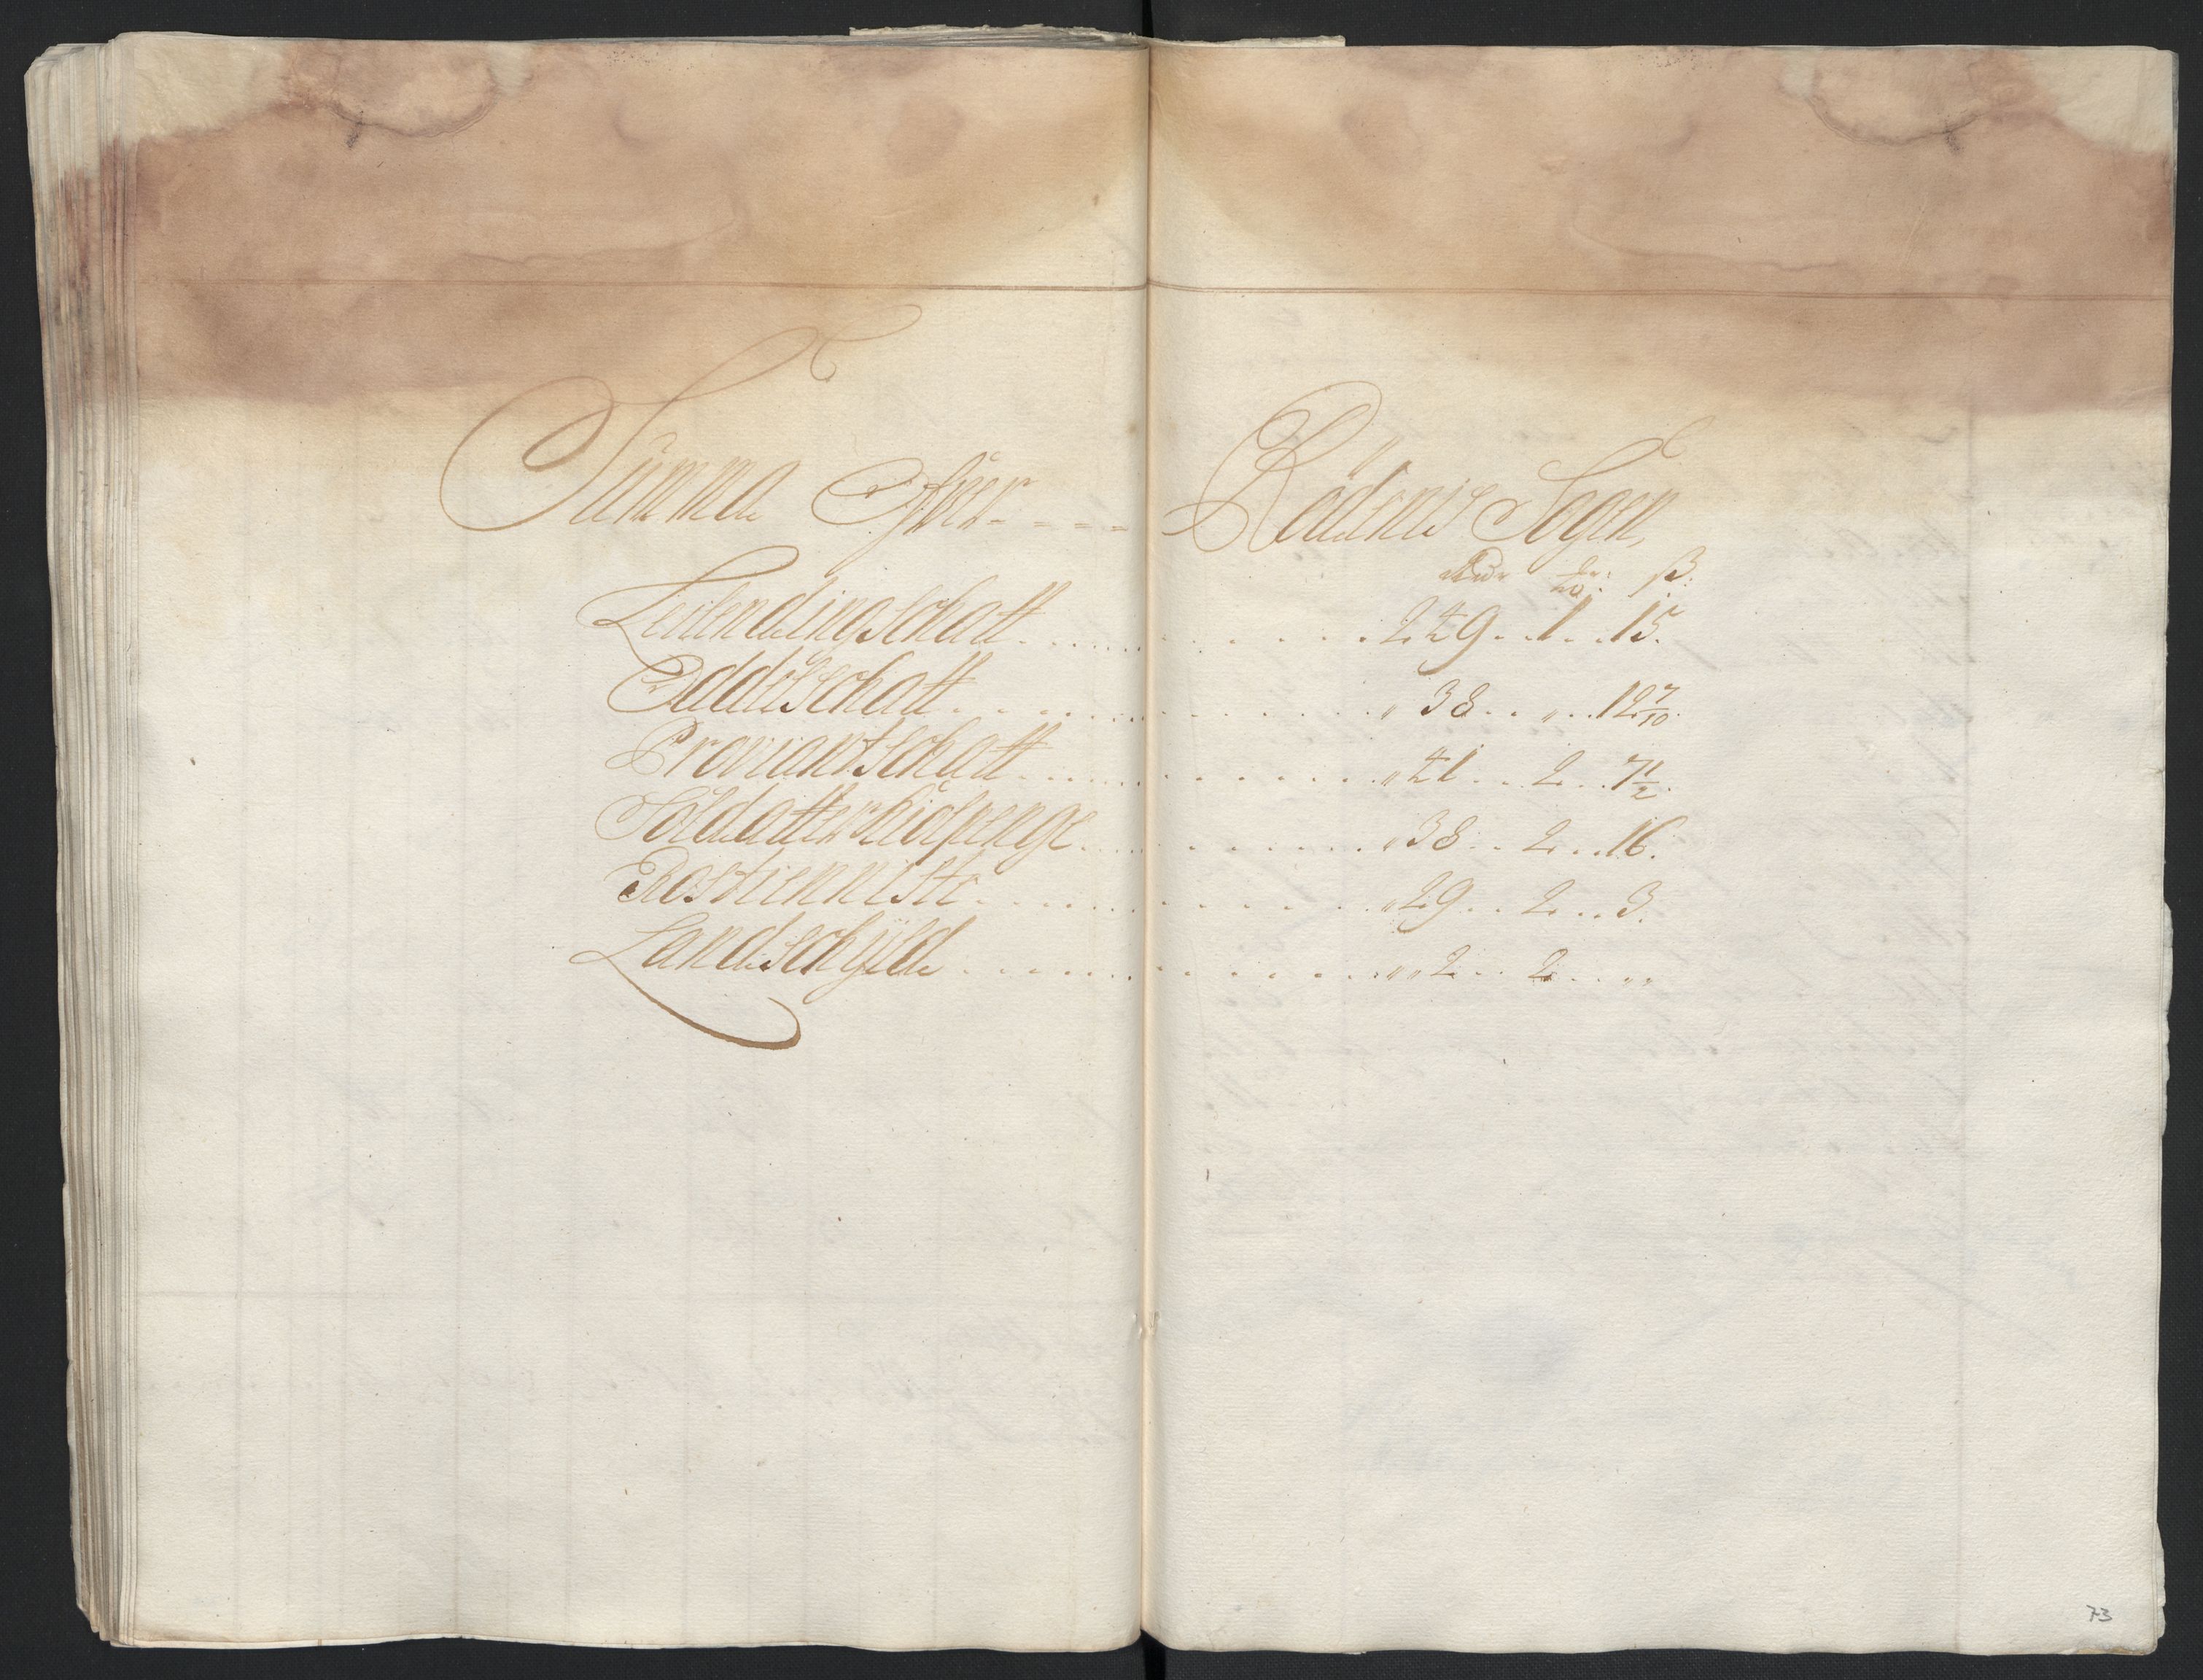 Summa Ofver - - - - Rödenis Sogen,
Rdr ort: ß:
Leilendingschatt . . . . . 249 . . 1 . . 15.
Oddelschatt . . . . . „ 38 . . „ . . 12 7/10.
Proviantschatt . . . . . „ 41 . . 2 . . 7 1/2.
Soldatterhielpenge . . . . . „ 38 . . 2 . . 16.
Rostienniste . . . . . „ 29 . . 2 . . 3.
Landschÿld . . . . . „ „ 2 . . 2 . . „ „
73